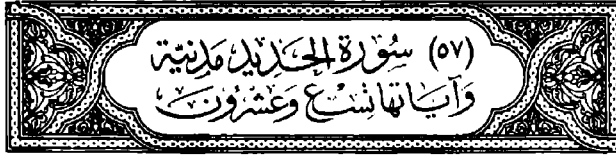 (٥٧) سُورَةُ الحَدِيدِ مَدَنِيَّة
وَآيَاتُهَا تِسْع وَعِشْرُونَ